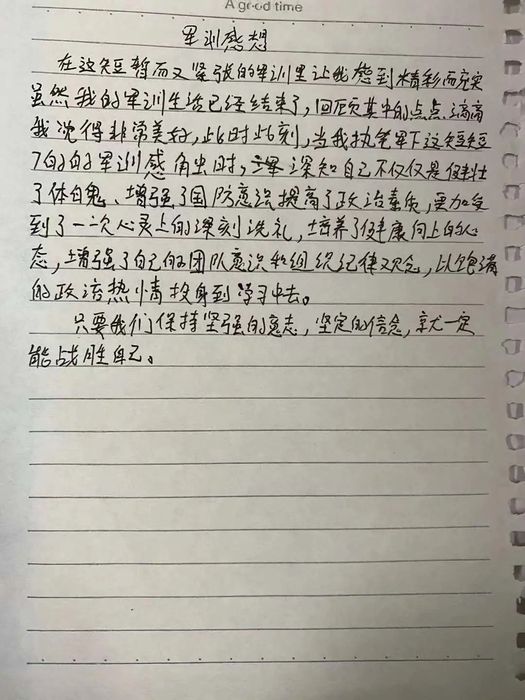 A good time
军训感想
在这短暂而又紧张的军训里让我感到精彩而充实
虽然我的军训生活已经结束了,回顾其中的点点滴滴
我觉得非常美好,此时此刻,当我执笔写下这短短
的的军训感触时,深知自己不仅仅是健壮
了体魄、增强了国防意识提高了政治素质,更加受
到了一次心灵上的深刻洗礼,培养了健康向上的心
态,增强了自己的团队意识和组织纪律观念,以饱满
的政治热情投身到学习中去。
只要我们保持坚强的意志,坚定的信念,就一定
能战胜自己。